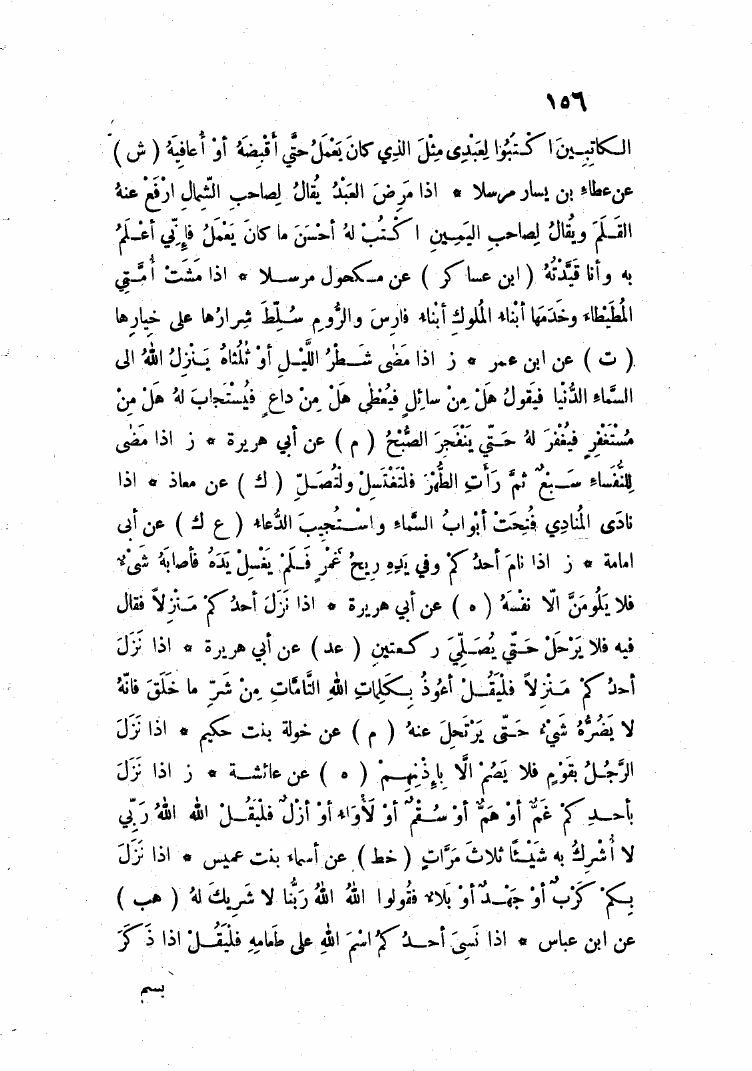 ١٥٦
الكاتبين اكْتُبُوا لِعَبْدِى مِثْلَ الذِي كانَ يَعْمَلُ حتَّي أَقْبِضَهُ أوْ أُعافِيَهُ ( ش )
عن عطاء بن يسار مرسلا * اذا مَرِضَ العَبْدُ يُقالُ لِصاحبِ الشِّمالِ ارْفَعْ عنهُ
القَلَمَ ويُقالُ لِصاحبِ اليَمِينِ اكْتُبْ لهُ أحْسَنَ ما كانَ يَعْمَلُ فإِنِّي أَعْلَمُ
به وأنا قَيَّدْتُهُ ( ابن عساكر ) عن مكحول مرسلا * اذا مَشَتْ أُمَّتِي
المُطَيْطاء وخَدَمَها أبْناء المُلوكِ أبْناء فارِسَ والرُّومِ سُلِّطَ شِرارُها على خِيارِها
( ت ) عن ابن عمر * ز اذا مَضَى شَطْرُ اللَّيْلِ أوْ ثُلُثاهُ يَنْزِلُ اللهُ الى
السَّماء الدُّنْيا فيَقولُ هَلْ مِنْ سائِلٍ فيُعْطَى هَلْ مِنْ داعٍ فيُسْتَجابَ لهُ هَلْ مِنْ
مُسْتَغْفِرٍ فيُغْفَرَ لهُ حَتَّى يَنْفَجِرَ الصُّبْحُ ( م ) عن أبي هريرة * ز اذا مَضَى
لِلنُّفَساءِ سَبْعٌ ثمَّ رَأَتِ الطُّهْرَ فلْتَغْتَسِلْ ولْتُصَلِّ ( ك ) عن معاذ * اذا
نادَى المُنادِي فُتِحَتْ أبْوابُ السَّماء واسْتُجِيبَ الدُّعاء ( ع ك ) عن أبى
امامة * ز اذا نامَ أحدُكمْ وفي يَدِهِ رِيحُ غَمَرٍ فَلَمْ يَغْسِلْ يَدَهُ فأصابَهُ شَىْءٌ
فلا يَلُومَنَّ الَّا نفْسَهُ ( ه ) عن أبي هريرة * اذا نَزَلَ أحدُكمْ مَنْزِلاً فقال
فيه فلا يَرْحَلْ حَتَّي يُصَلِّيَ ركعتين ( عد ) عن أبي هريرة * اذا نَزَلَ
أحدُكمْ مَنْزِلاً فلْيَقُلْ أعُوذُ بِكَلِماتِ اللهِ التَّامَّاتِ مِنْ شَرِّ ما خَلَقَ فانَّهُ
لا يَضُرُّهُ شَيْءٌ حَتَّى يَرْتَحِلَ عنهُ ( م ) عن خولة بنت حكيم * اذا نَزَلَ
الرَّجُلُ بقَوْمٍ فلا يَصُمْ الَّا بإِذْنِهِمْ ( ه ) عن عائشة * ز اذا نَزَلَ
بأحدِكمْ غَمٌّ أوْ هَمٌّ أوْ سُقْمٌ أوْ لَأْوَاء أوْ أزْلٌ فلْيَقُلْ الله اللهُ رَبِّي
لا أُشْرِكُ به شَيْئاً ثلاثَ مَرَّاتٍ ( خط ) عن أسماء بنت عميس * اذا نَزَلَ
بِكمْ كَرْبٌ أوْ جَهْدٌ أوْ بَلاءٌ فقُولوا اللهُ اللهُ رَبُّنا لا شَرِيكَ لهُ ( هب )
عن ابن عباس * اذا نَسِىَ أحدُكمُ اسْمَ اللهِ على طَعامِهِ فلْيَقُلْ اذا ذَكَرَ
بسم